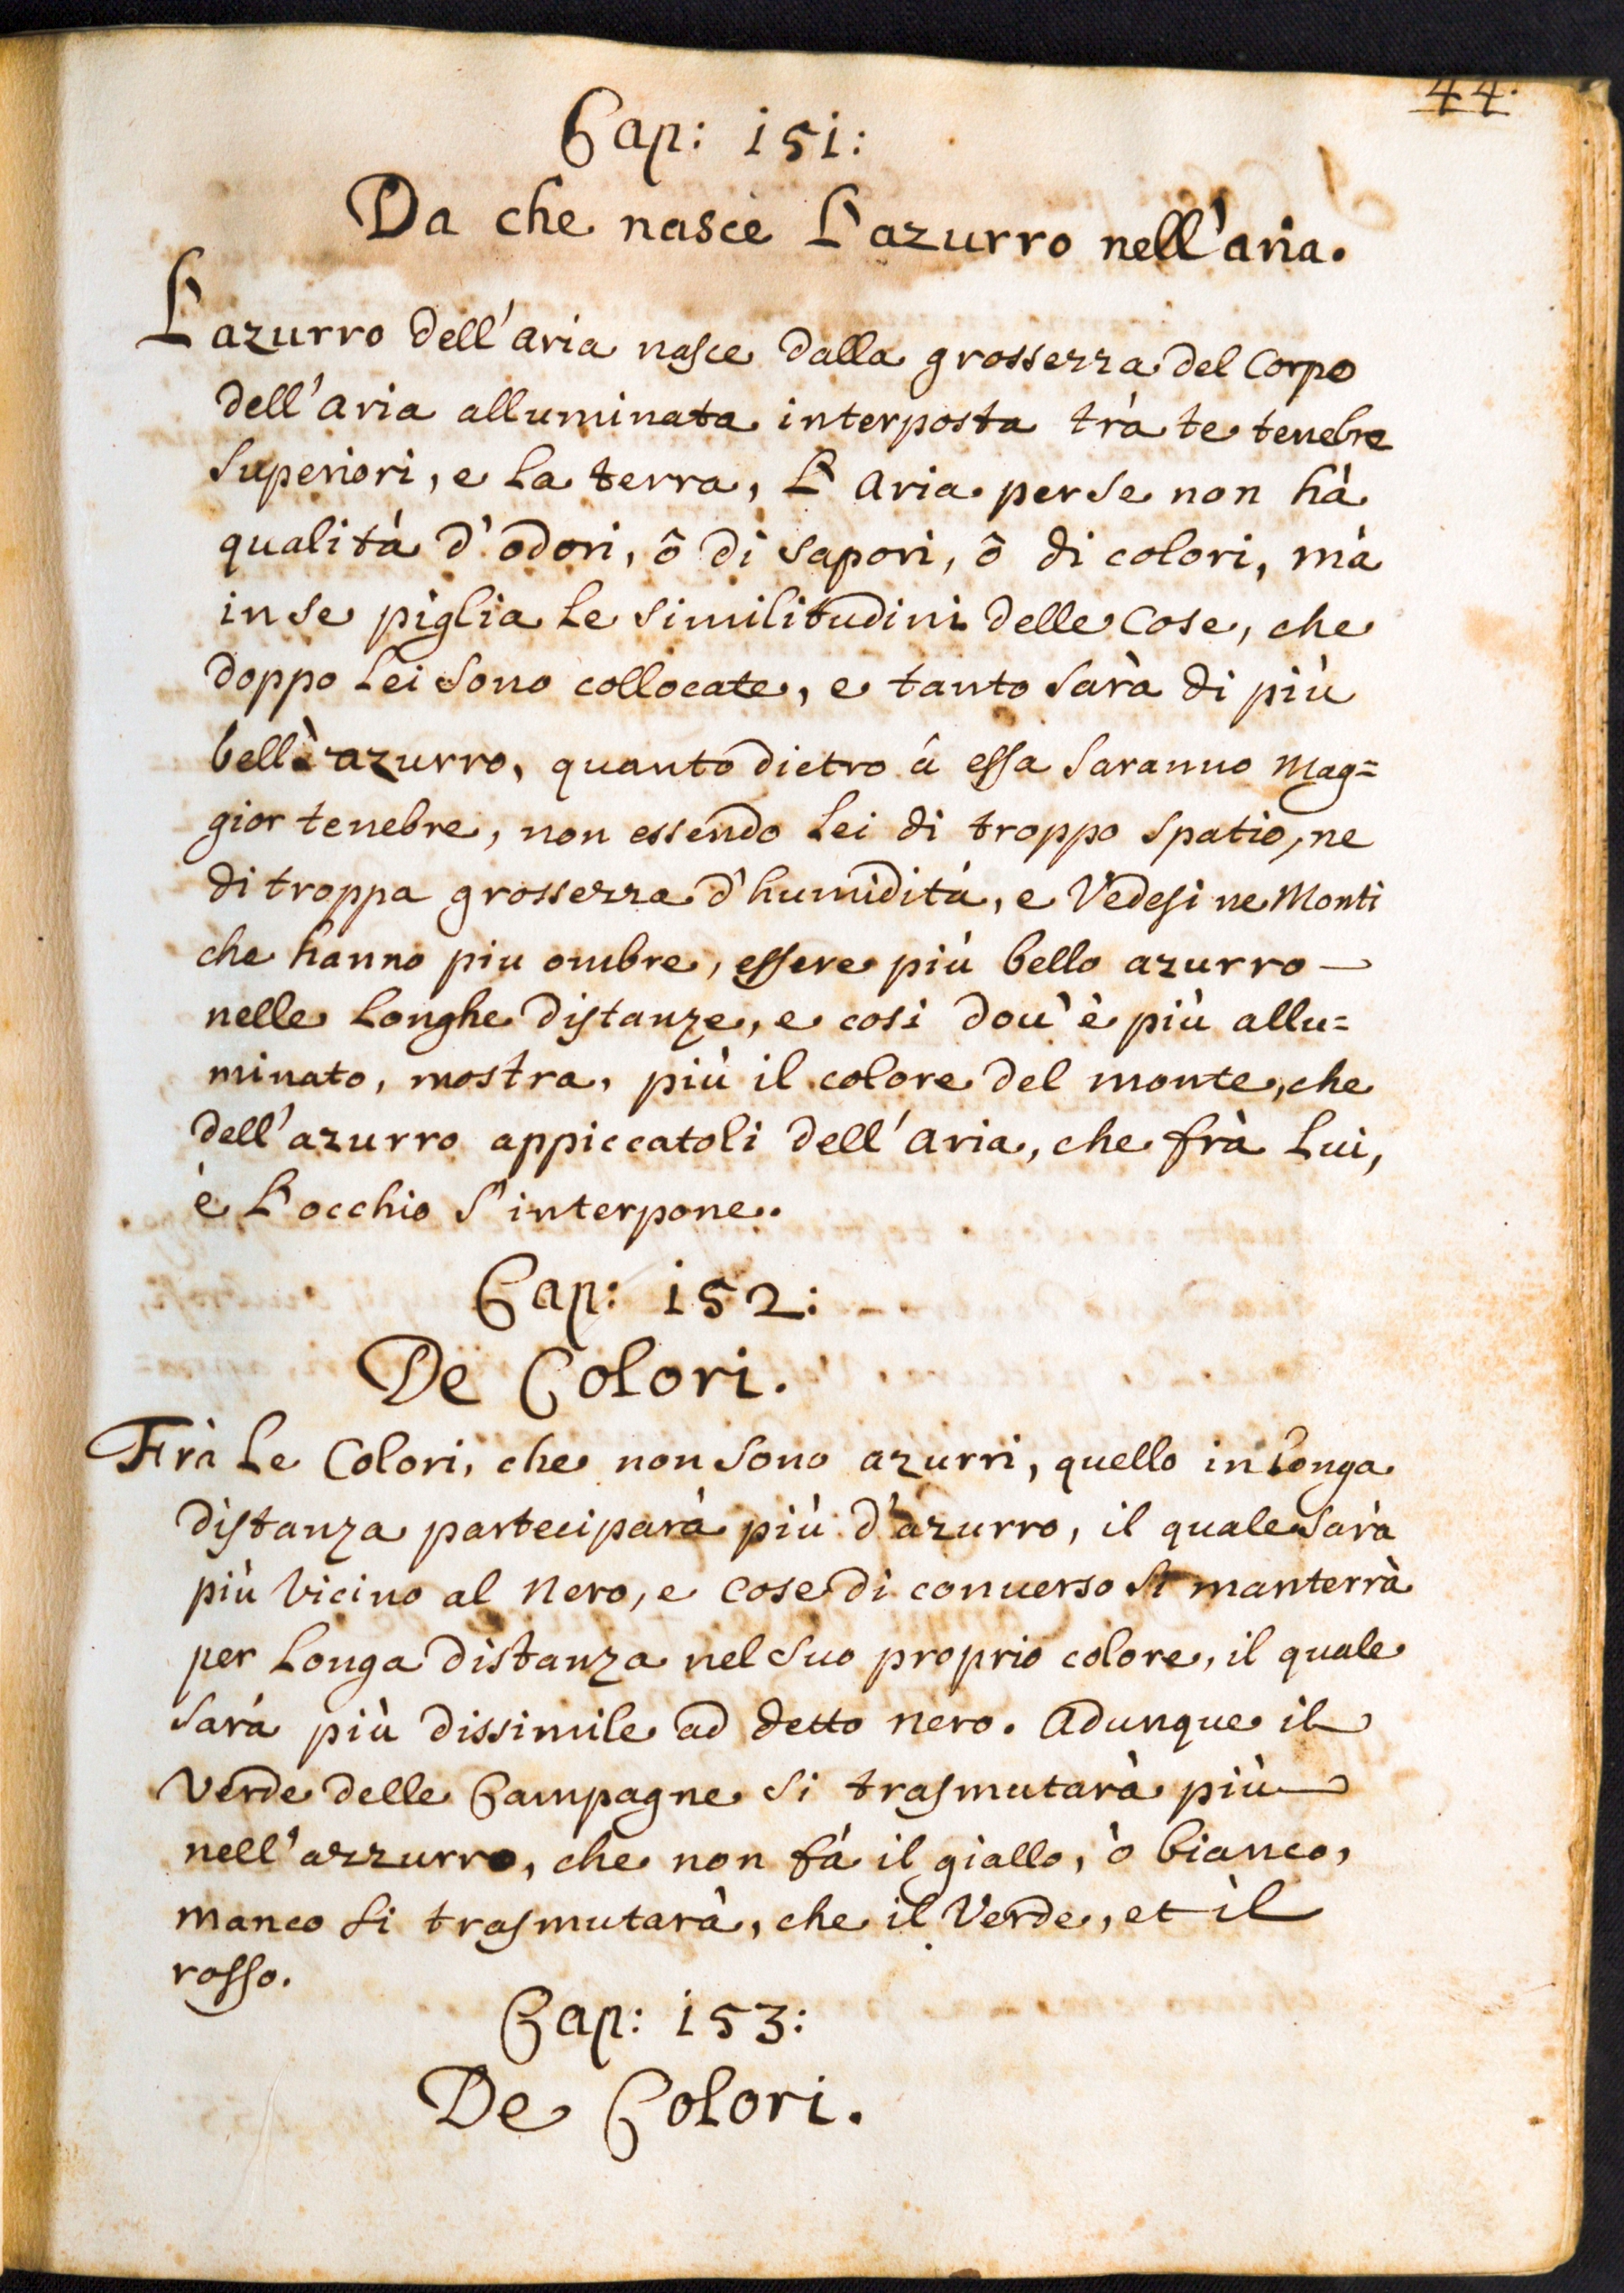 44.
Cap: 151:
Da che nasce L'azurro nell'aria.
L'azurro dell'aria nasce dalla grossezza del Corpo
dell'aria alluminata interposta trà te tenebre
superiori, e la terra, L'Aria per se non hà
qualità d'odori, ô di sapori, ô di colori, mà
in se piglia le similitudini delle Cose, che
doppo lei sono collocate, e tanto sarà di più
bell'azurro, quanto dietro â essa saranno mag=
gior tenebre, non essendo lei di troppo spatio, ne
di troppa grossezza d'humidità, e Vedesi ne Monti
che hanno piu ombre, essere più bello azurro
nelle longhe distanze, e così dou'è più allu=
minato, mostra, più il colore del monte, che
dell'azurro appiccatoli dell'aria, che frà lui,
è L'occhio s'interpone.
Cap: 152:
De Colori.
Frà le Colori, che non sono azurri, quello in longa
distanza parteciparà più d'azurro, il quale sarà
più vicino al Nero, e cose di conuerso si manterrà
per longa distanza nel suo proprio colore, il quale
sarà più dissimile ad detto nero. Adunque il
verde delle Campagne si trasmutarà più
nell'azzurro, che non fà il giallo, ò bianco,
manco si trasmutarà, che il Verde, et il
rosso.
Cap: 153:
De Colori.